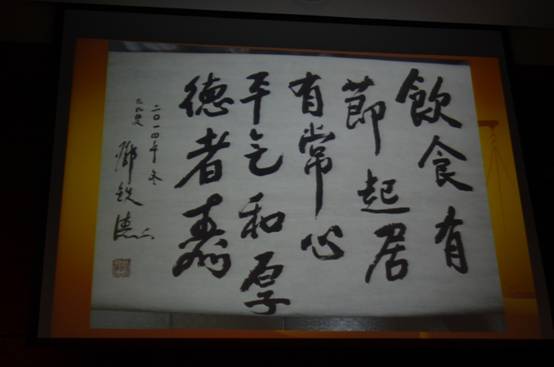 飲食有
節起居
有常心
平气和厚
德者壽
二〇一四年冬
鄧鐵濤